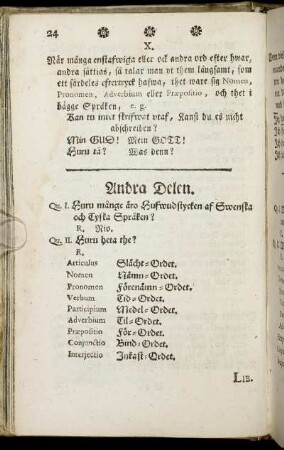 24
X.
När många enstafwiga eller ock andra ord efter hwar,
andra sättias, så talar man ut them långsamt, som
ett särdeles eftertryck hafwa, thet ware sig Nomen,
Pronomen, Adverbium eller Præpositio, och thet i
bägge Språken, e. g.
Kan tu intet skrifwat utaf, Kanst du es nicht
abschreiben?
Min GUD! Mein GOTT!
Huru så? Was denn?
Andra Delen.
Qu. I. Huru månge äro Hufwudstycken af Swenska
och Tyska Språken?
R. Nio.
Qu. II. Huru heta the?
R.
Articulus Slächt=Ordet.
Nomen Nämn=Ordet.
Pronomen Förenämn=Ordet.
Verbum Tid=Ordet.
Participium Medel=Ordet.
Adverbium Til=Ordet.
Præpositio För=Ordet.
Conjunctio Bind=Ordet.
Interjectio Inkast=Ordet.
LIB.